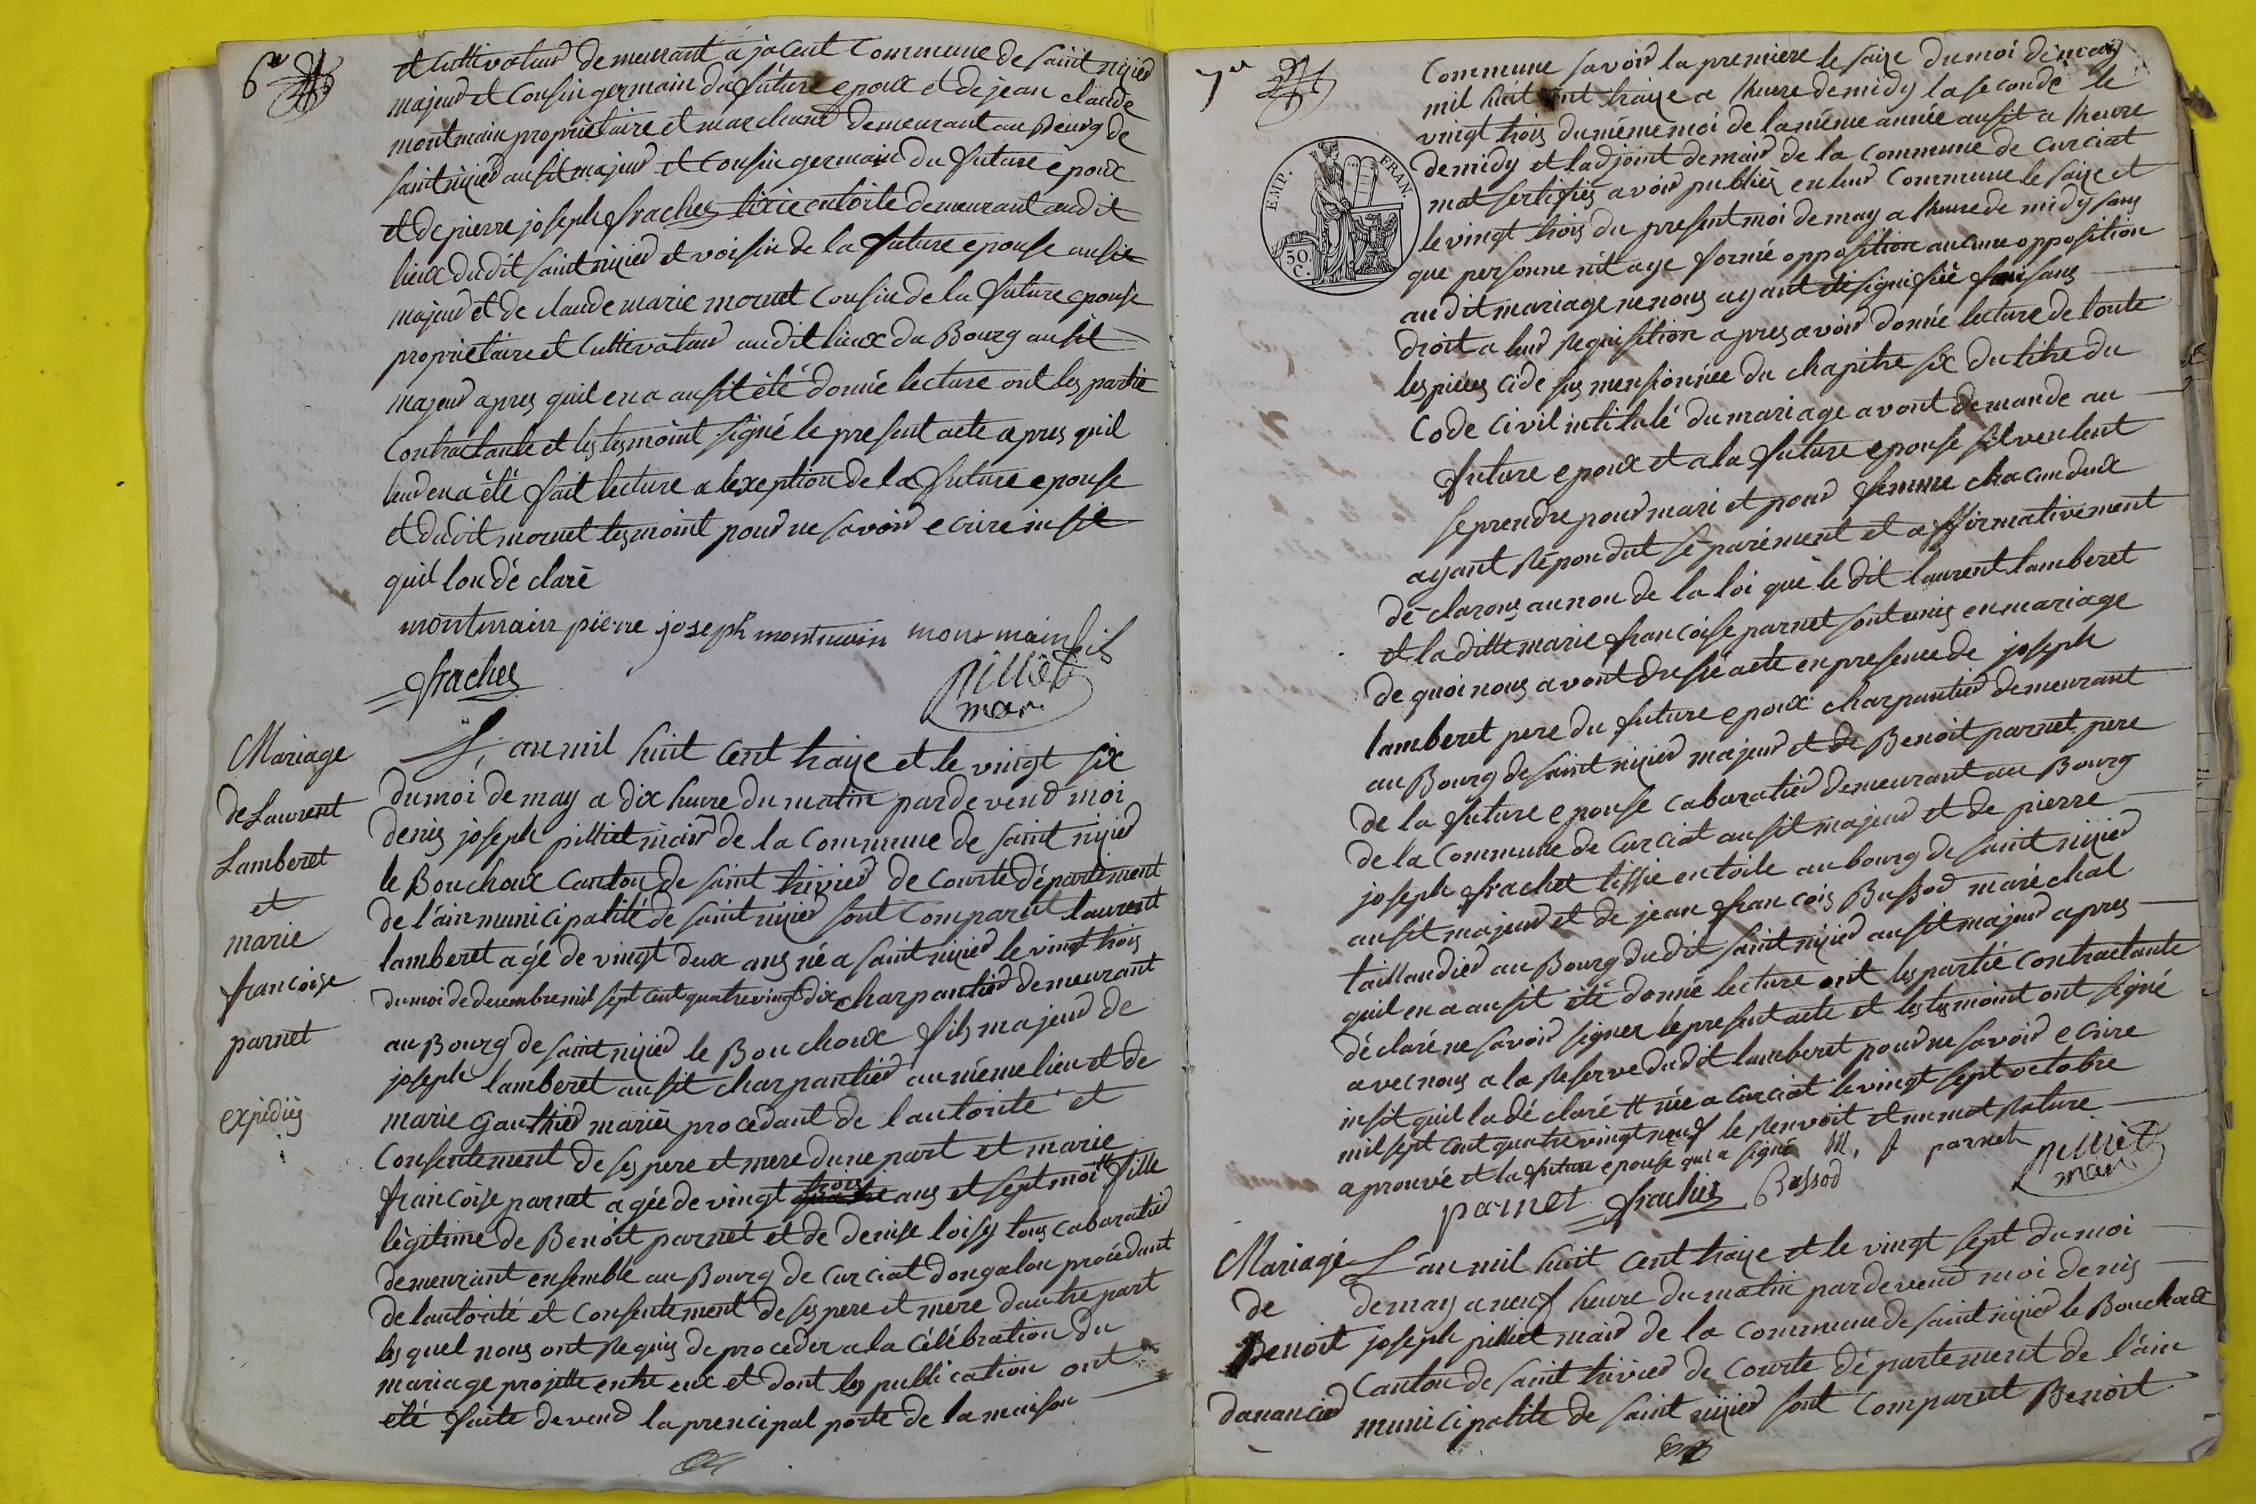 6e
et Cultivateur demeurant a jacent Commune de saint nizied
majeur et Cousin germain du future epoux et de jean claude
montmain proprietaire et marchand demeurant au Bourg de
saint nizied ausit majeur et Cousin germain du future epoux
et de pierre joseph frachet tixie entoile demeurant audit
lieux dudit saint nizied et voisin de la future epouse ausit
majeur et de claude marie mornet Cousin de la future epouse
proprietaire et Cultivateur audit lieux du Bourg ausit
majeur apres quil en a ausit été donnée lecture ont les partie
Contractante et les tesmoint signé le present acte apres quil
leur en a été fait lecture a lexeption de la future epouse
et dudit mornet tesmoint pour ne savoir ecrire insit
quil lon déclaré
montmain pierre joseph montmain monmain fils
frachet
pilliet
mair
Mariage
de Laurent
Lamberet
et
marie
françoise
parnet
expédiés
L'an mil huit cent traize et le vingt six
du moi de may a dix heure du matin pardevend moi
denis joseph pilliet mair de la Commune de saint nizied
le Bouchoux Canton de saint trivied de Courte département
de l'ain municipalité de saint nizied sont Comparut laurent
lamberet agé de vingt deux ans né a saint nizied le vingt trois
du moi de decembre mil sept cent quatrevingt dix charpantied demeurant
au Bourg de saint nizied le Bouchoux fils majeur de
joseph lamberet ausit charpantied au même lieu et de
marie Gauthied mariés procédant de l'autorité et
Consentement de ses pere et mere dune part et marie
françoise parnet agée de vingt trois quatre ans et sept moi tt fille
légitime de Benoit parnet et de denise loisy tous cabaratied
demeurant ensemble au Bourg de Curciat dongalon procédant
de lautorité et Consentement de ses pere et mere dautre part
les quel nous ont Requis de proceder a la Célébration du
mariage projetté entre eux et dont les publication ont
été faite devend la prencipal porte de la maison
7e
EMP. FRAN.
50
C.
Commune savoir la premiere le saize du moi de may
mil huit cent traize a lheure de midy la seconde le
vingt trois du même moi de la même année ausit a lheure
de midy et ladjoint demair de la Commune de Curciat
mat sertifiés avoir publiés en leur Commune le saize et
le vingt trois du present moi de may a lheure de midy sans
que personne n'il aye formé opposition aucune opposition
audit mariage ne nous ayant été signifiée faisans
droit a leur Requisition apres avoir donnée lecture de toute
les pieces cide sus mensionnée du chapitre six du titre du
Code Civil intitulé du mariage avont demande au
future epoux et a la future epouse sil veulent
se prendre pour mari et pour femme chacun deux
ayant Répondut séparément et affirmativement
dé-clarons au non de la loi que le dit laurent lamberet
et la ditte marie françoise parnet sont unis en mariage
de quoi nous avont dressé acte en presence de joseph
lamberet pere du future epoux charpantied demeurant
au Bourg de saint nizied majeur et de Benoit parnet pere
de la future epouse cabaratied demeurant au Bourg
de la Commune de Curciat ausit majeur et de pierre
joseph frachet tissie entoile au bourg de saint nizied
ausit majeur et de jean françois Bussod maréchal
taillandied au Bourg dudit saint nizied ausit majeur apres
quil en a ausit été donnée lecture ont les partie Contractante
déclaré ne savoir signer le present acte et les tesmoint ont signé
avec nous a la Reserve dudit lamberet pour ne savoir ecrire
insit quil la déclaré tt née a Curciat le vingt sept octobre
mil sept cent quatrevingt neuf le Renvoit et un mot Rature
aprouvé et la future epouse qui a signé M, f parnet
parnet frachet Bussod pilliet
mair
Mariagé
de
Benoit
danancied
L'an mil huit Cent traize et le vingt sept du moi
de may a neuf heure du matin pardevend moi denis
joseph pilliet mair de la Commune de saint nizied le Bouchoux
Canton de saint trivied de Courte département de l'ain
municipalité de saint nizied sont Comparut Benoit